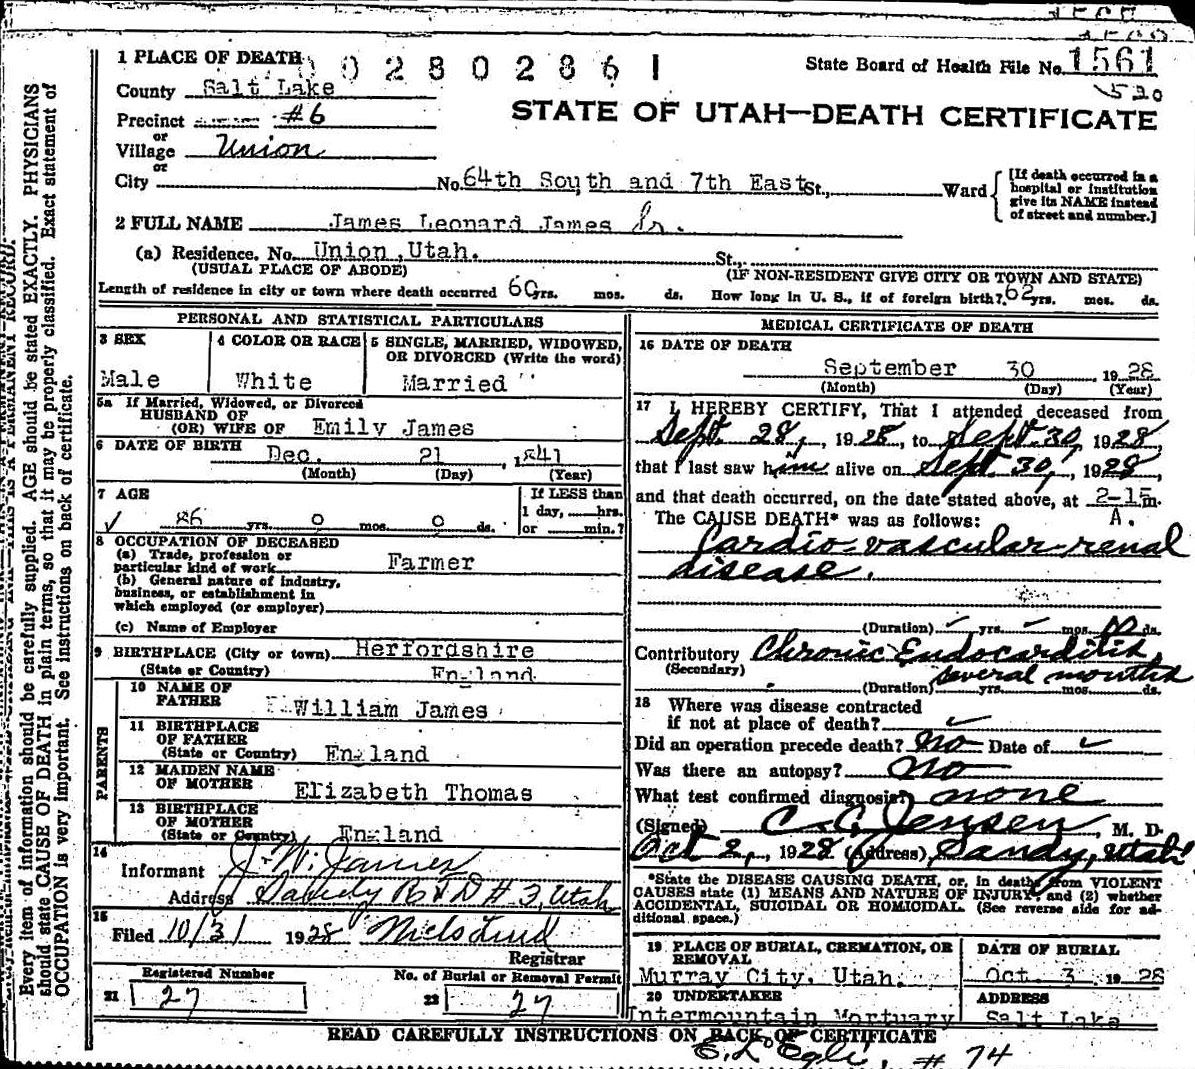 1 PLACE OF DEATH
002802861
State Board of Health File No. 1561
530
County Salt Lake
STATE OF UTAH—DEATH CERTIFICATE
Precinct #6
or
Village Union
or
City No. 64th South and 7th East St., Ward
[If death occurred in a hospital or institution give its NAME instead of street and number.]
2 FULL NAME James Leonard James Sr.
(a) Residence. No. Union, Utah. St.,
(USUAL PLACE OF ABODE) (IF NON-RESIDENT GIVE CITY OR TOWN AND STATE)
Length of residence in city or town where death occurred 60 yrs. mos. ds. How long in U. S., if of foreign birth? 62 yrs. mos. ds.
PERSONAL AND STATISTICAL PARTICULARS
3 SEX
Male
4 COLOR OR RACE
White
5 SINGLE, MARRIED, WIDOWED,
OR DIVORCED (Write the word)
Married
5a If Married, Widowed, or Divorced
HUSBAND OF
(OR) WIFE OF Emily James
6 DATE OF BIRTH Dec. 21, 1841
(Month) (Day) (Year)
7 AGE
86 yrs. 0 mos. 0 ds.
If LESS than
1 day, hrs.
or min.?
8 OCCUPATION OF DECEASED
(a) Trade, profession or
particular kind of work Farmer
(b) General nature of industry,
business, or establishment in
which employed (or employer)
(c) Name of Employer
9 BIRTHPLACE (City or town) Herfordshire
(State or Country) England
PARENTS
10 NAME OF
FATHER William James
11 BIRTHPLACE
OF FATHER
(State or Country) England
12 MAIDEN NAME
OF MOTHER Elizabeth Thomas
13 BIRTHPLACE
OF MOTHER
(State or Country) England
14
Informant J. W. James
Address Sandy R F D # 3, Utah
15
Filed 10/31 1928 Niels Lind
Registrar
Registered Number
21 27
No. of Burial or Removal Permit
22 27
MEDICAL CERTIFICATE OF DEATH
16 DATE OF DEATH
September 30 1928
(Month) (Day) (Year)
17 I HEREBY CERTIFY, That I attended deceased from
Sept. 28, 1928, to Sept. 30, 1928,
that I last saw him alive on Sept. 30, 1928,
and that death occurred, on the date stated above, at 2-15 m.
A.
The CAUSE DEATH* was as follows:
Cardio-vascular-renal
disease.
(Duration) yrs. mos. ds.
Contributory Chronic Endocarditis,
(Secondary) several months
(Duration) yrs. mos. ds.
18 Where was disease contracted
if not at place of death?
Did an operation precede death? No Date of
Was there an autopsy? No
What test confirmed diagnosis? none
(Signed) C. C. Jensen, M. D.
Oct 2, 1928 (Address) Sandy, Utah
*State the DISEASE CAUSING DEATH, or, in death from VIOLENT
CAUSES state (1) MEANS AND NATURE OF INJURY, and (2) whether
ACCIDENTAL, SUICIDAL OR HOMICIDAL. (See reverse side for ad-
ditional space.)
19 PLACE OF BURIAL, CREMATION, OR
REMOVAL
Murray City, Utah.
DATE OF BURIAL
Oct. 3 1928
20 UNDERTAKER
Intermountain Mortuary
ADDRESS
Salt Lake
READ CAREFULLY INSTRUCTIONS ON BACK OF CERTIFICATE
# 74
Every item of information should be carefully supplied. AGE should be stated EXACTLY. PHYSICIANS
should state CAUSE OF DEATH in plain terms, so that it may be properly classified. Exact statement of
OCCUPATION is very important. See instructions on back of certificate.